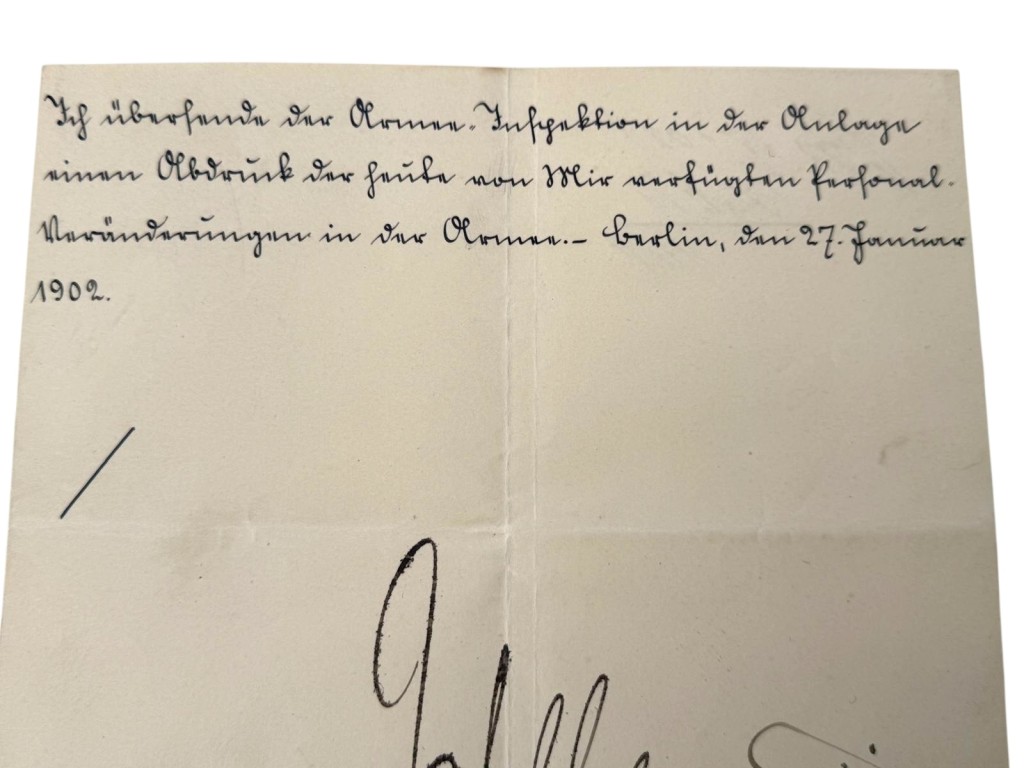 Ich übersende der Armee-Inspektion in der Anlage
einen Abdruck der heute von Mir verfügten Personal-
Veränderungen in der Armee.– Berlin, den 27. Januar
1902.